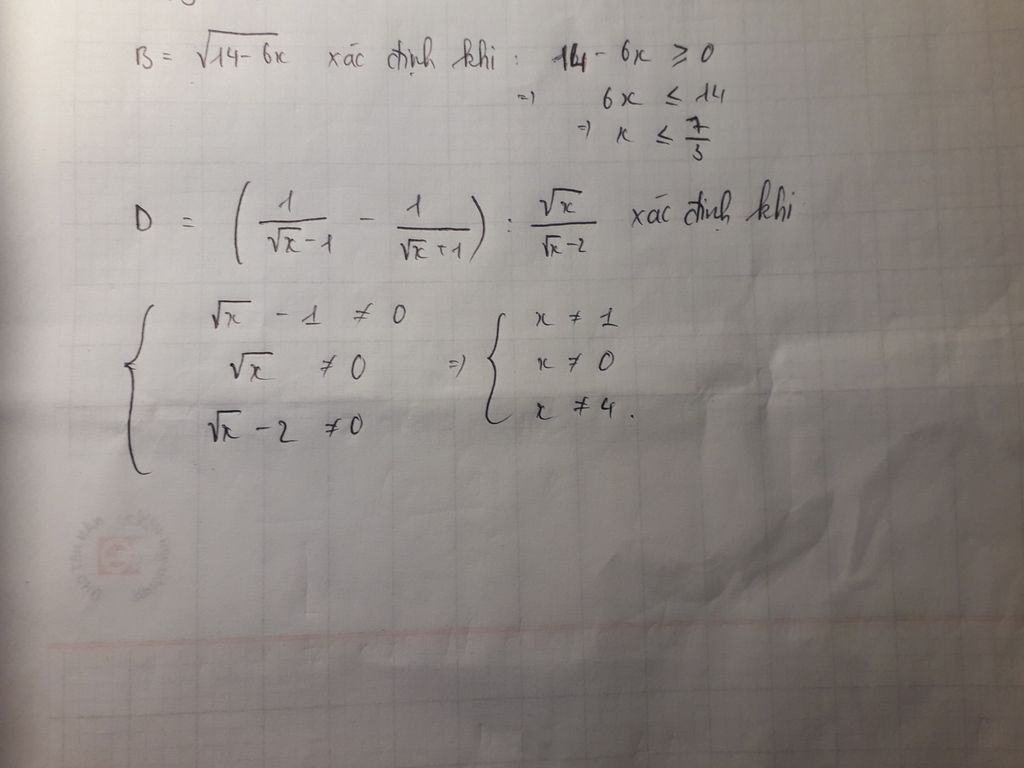 B = √(14-6x) xác định khi : 14 - 6x ≥ 0
=> 6x ≤ 14
=> x ≤ 7/3
D = ( 1/(√x - 1) - 1/(√x + 1) ) : √x/(√x - 2) xác định khi
{ √x - 1 ≠ 0 { x ≠ 1
√x ≠ 0 => x ≠ 0
√x - 2 ≠ 0 x ≠ 4 .